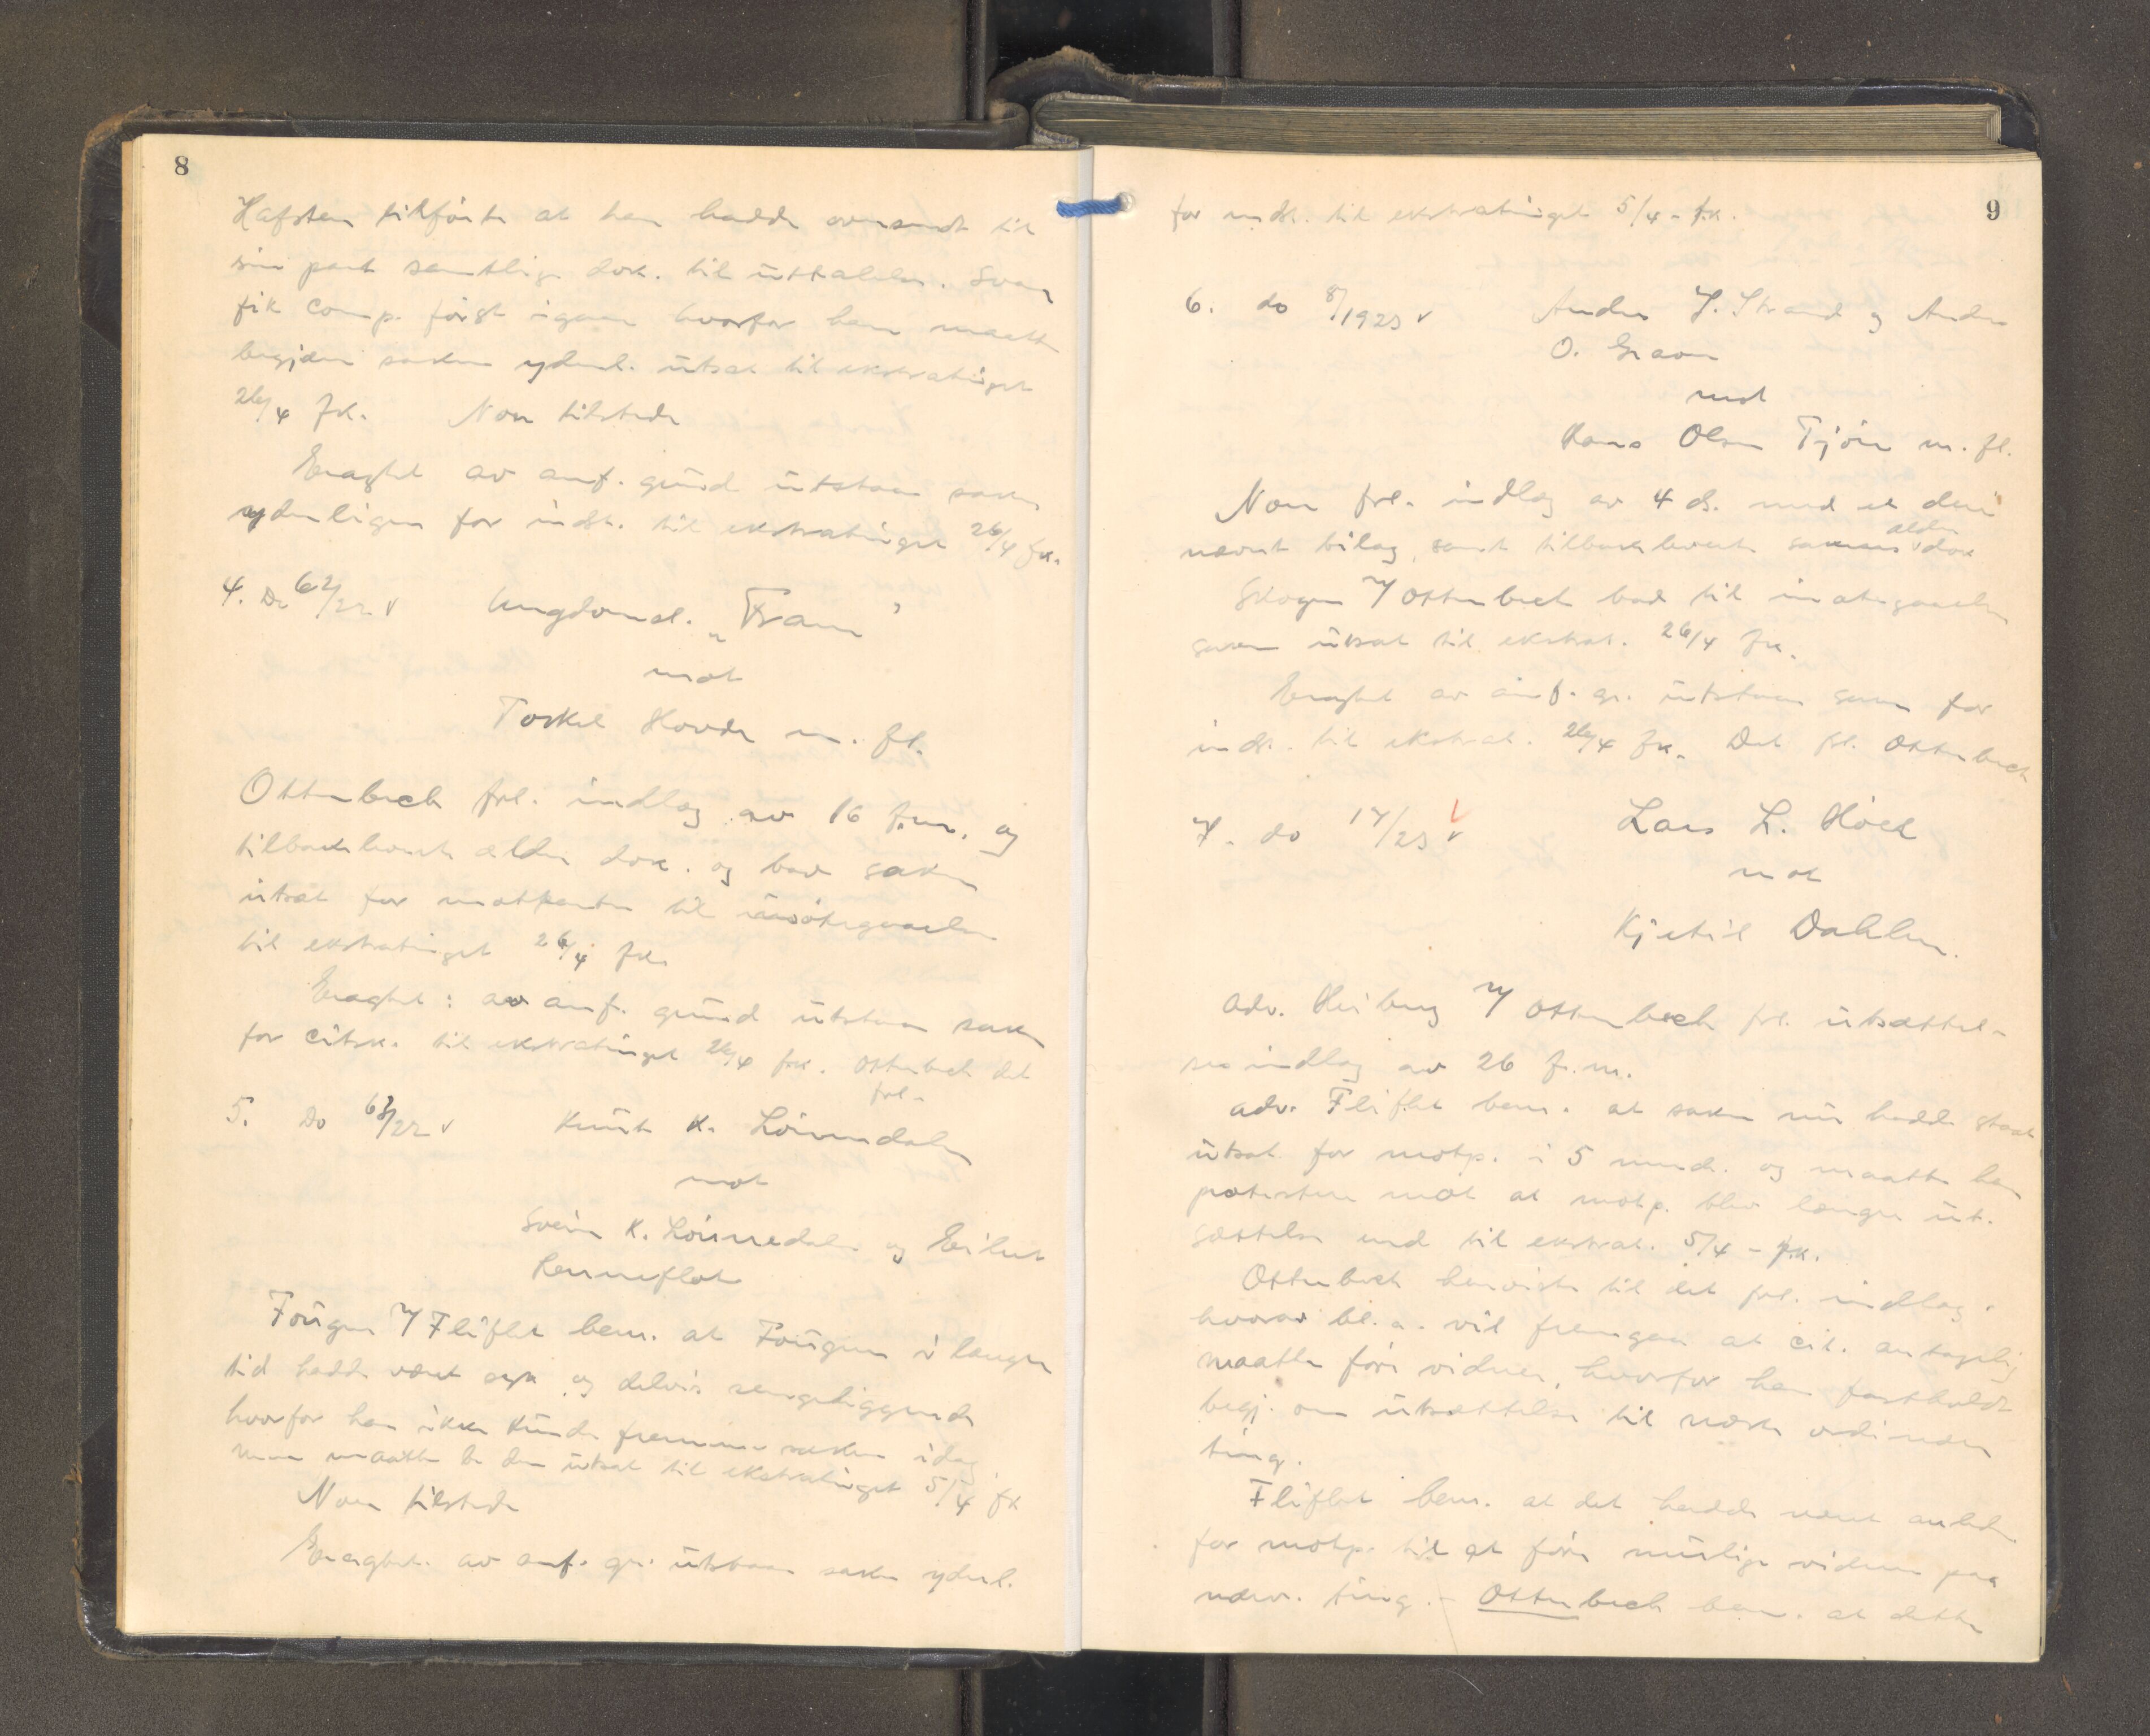 8
Hafsten tilførte at han hadde oversendt til
sin part samtlige dok. til uttalelse. Svar
fik Comp. først igaar hvorfor han maatte
begjære saken yderl. utsat til ekstratinget
26/4 fk. Non tilstede
Eragtet av anf. grund utstaar saken
yderligere for indst. til ekstratinget 26/4 fk.
4. Do 62/22 v Ungdomsl. „Fram"
mot
Torkel Hovde m. fl.
Otterbech frl. indlæg av 16 f.m. og
tilbakeleverte ældre dok. og bad saken
utsat for motparten til
til ekstratinget 26/4 fk.
Eragtet: av anf. grund utstaar saken
for citsk. til ekstratinget 26/4 fk. Otterbech det
frl.
5. Do 63/22 v Knut K. Lønnedalen
mot
Svein K. Lønnedalen og Eilert
Lenneflot
Fougner v/ Fliflet bem. at Fougner i længre
tid hadde været syk og delvis sengeliggende
hvorfor han ikke kunde fremme saken idag
men maatte be den utsat til ekstratinget 5/4 fk
Non tilstede
Eragtet. av anf. gr. utstaar saken yderl.
9
for indst. til ekstratinget 5/4 - f.k.
6. do 8/1923 v Anders J. Strand og Anders
O. Graver
mot
Hans Olsen Tjøn m. fl.
Non frl. indlæg av 4 ds. med et deri
nævnt bilag, samt tilbakeleverte sakens ældre dok
Skogen v/ Otterbech bad til imøtegaaelse
saken utsat til ekstrat. 26/4 fk.
Eragtet av anf. gr. utstaar saken for
indst. til ekstrat. 26/4 fk. Det frl. Otterbech
7. do 17/23 v Lars L.
mot
Kjetil Dahlen.
Adv. Heiberg v/ Otterbech frl. utsættel-
sesindlæg av 26 f.m.
Adv. Fliflet bem. at saken nu hadde staat
utsat for motp. i 5 mndr. og maatte han
protestere mot at motp. blev længre ut-
sættelse end til ekstrat. 5/4 - f.k.
Otterbech henviste til det frl. indlæg,
hvorav bl. a. vil fremgaa at cit. antagelig
maatte føre vidner, hvorfor han fastholdt
begj. om utsættelse til næste ordinære
ting.
Fliflet bem. at det hadde været anledn.
for motp. til at føre mulige vidner paa
nærv. ting. - Otterbech bem. at dette